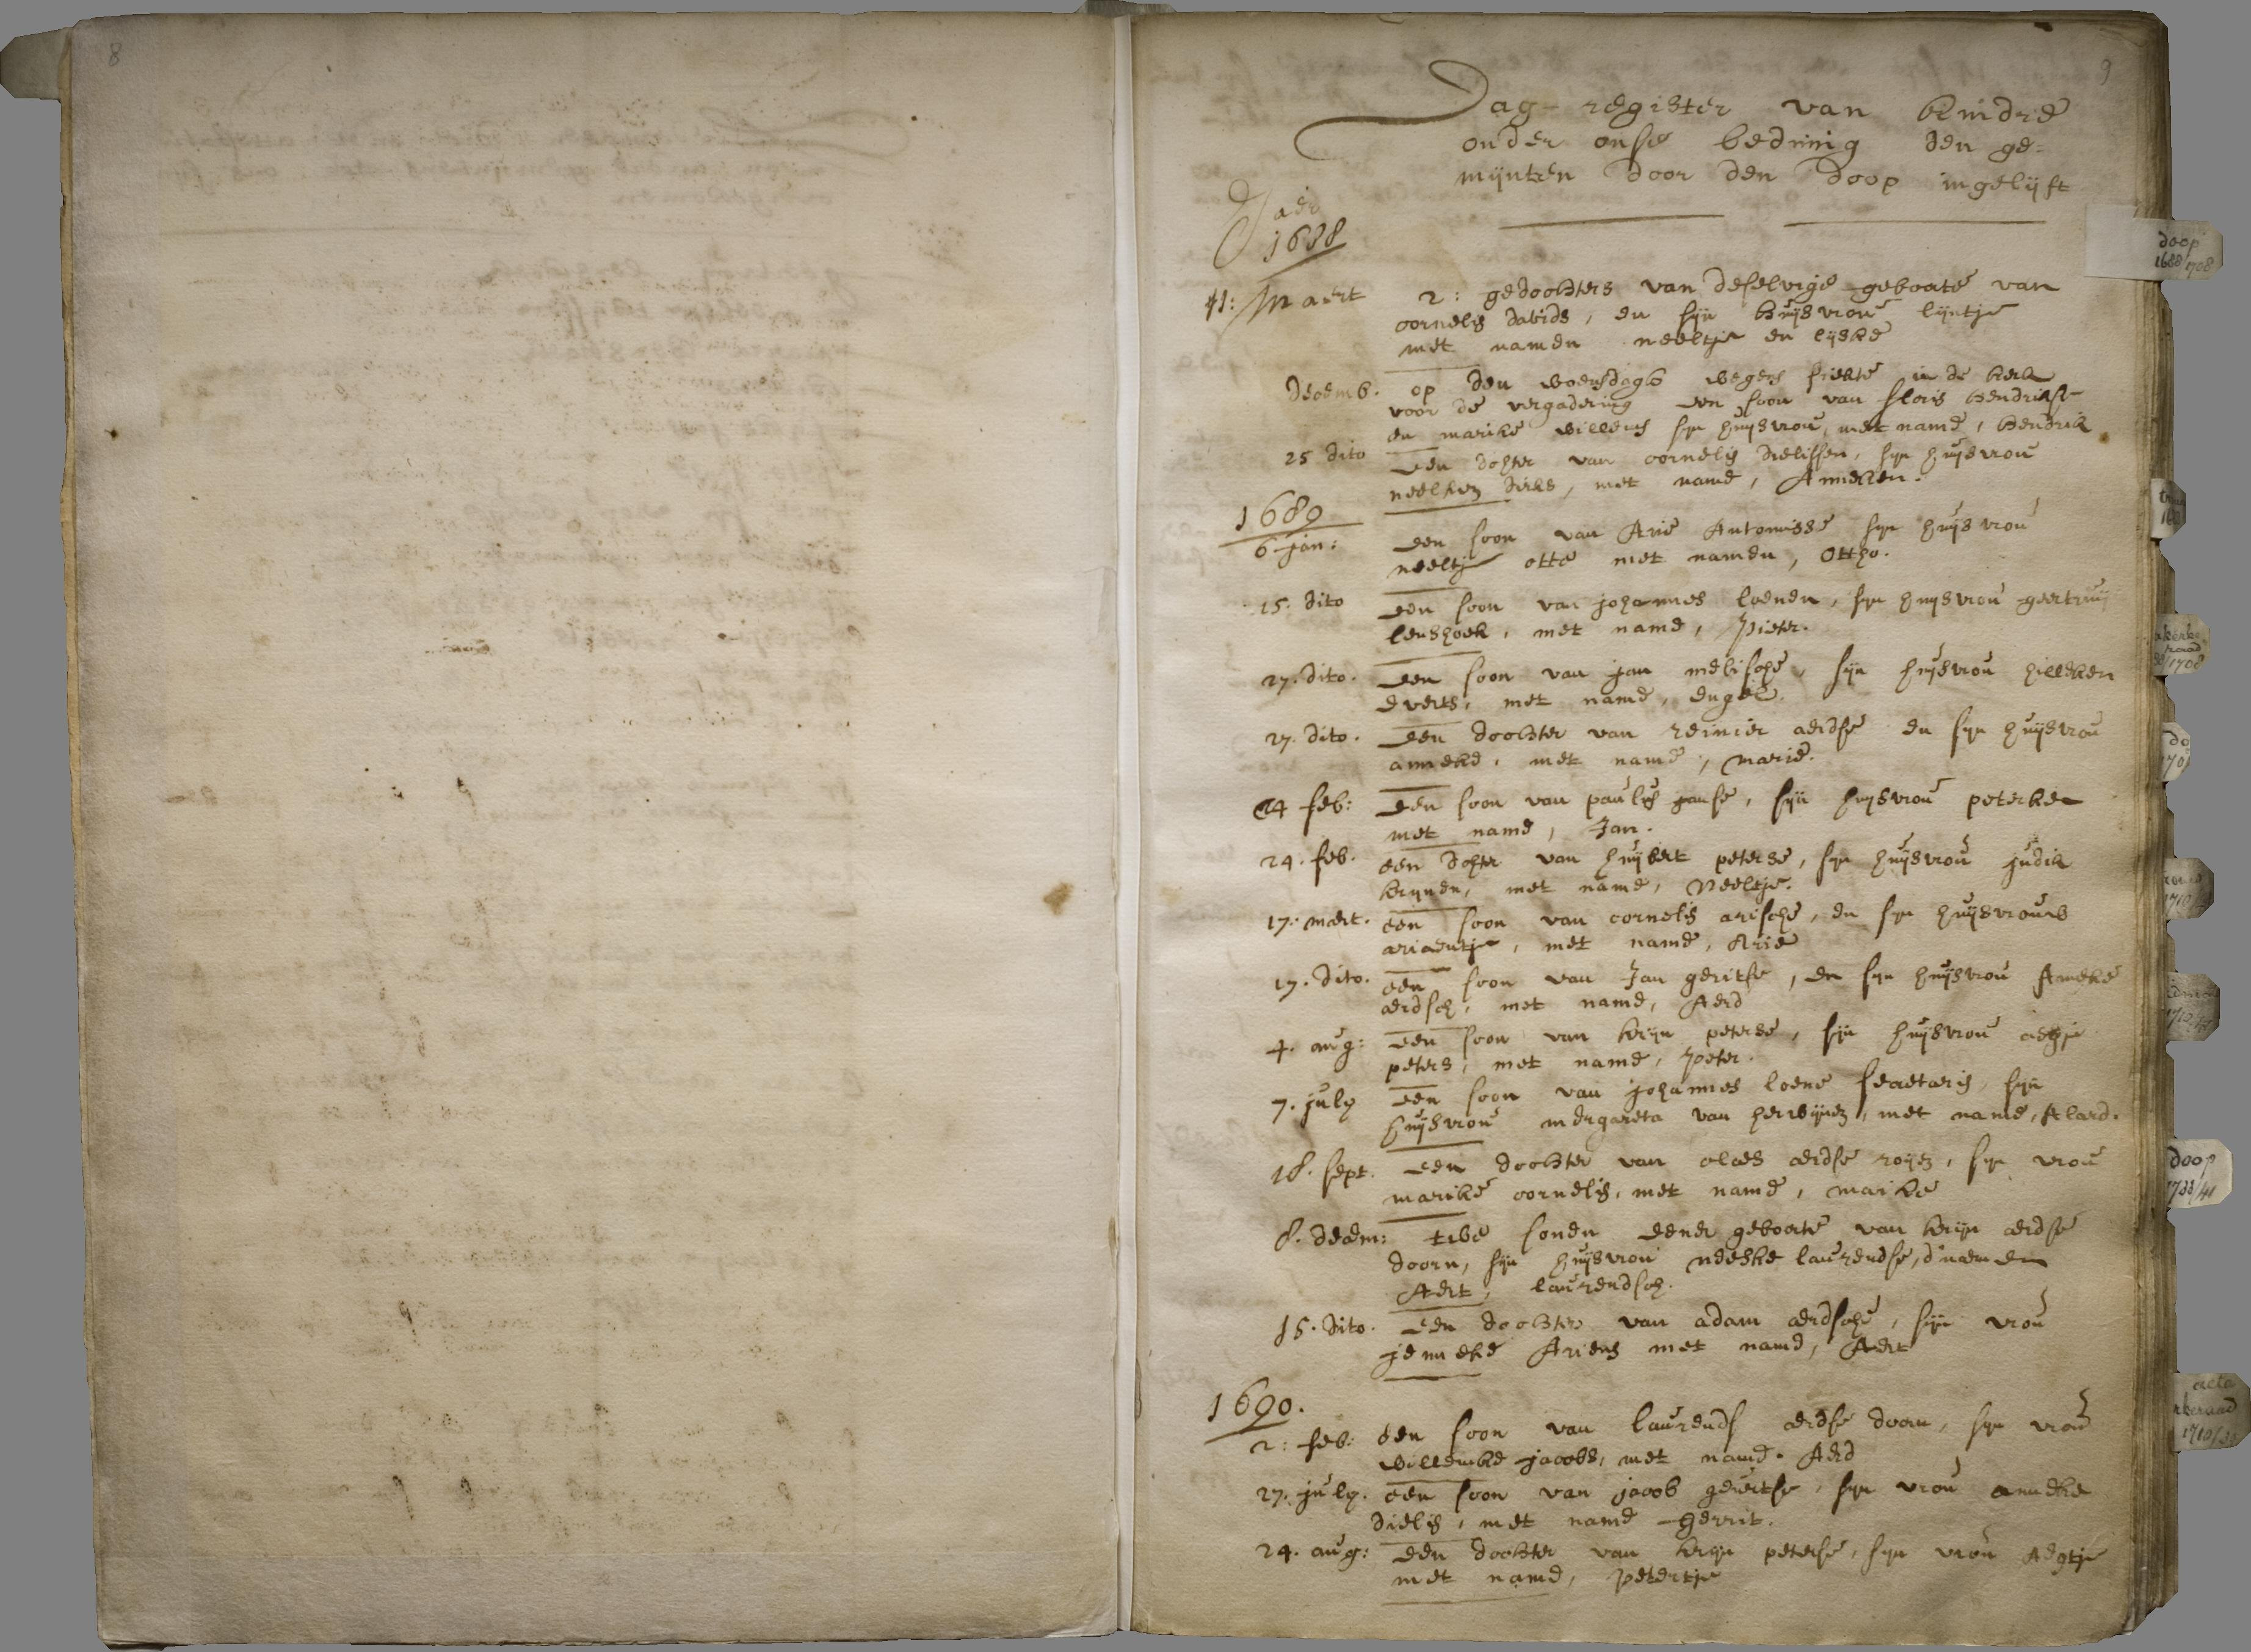 8
9
Dag-register van kindre
onder onse bedining den ge=
mijnten door den doop ingelijft
Jaer
1688
11: Maert 2: gedochters van deselvige geboorte van
cornelis davids, en sijn huijsvrou lijntje
met namen neeltje en lijske
decemb. op den woensdagh wegens siekte in de kerk
voor de vergadering een soon van floris hendrikse
en marike willems sijn huijsvrou, met name, hendrik
25 dito een dohter van cornelis dielissen, sijn huijsvrou
neelken dirks, met name, Anneken.
1689
6 jan: een soon van Arie Antonisse sijn huijsvrou
neeltje otte met namen, Ottho.
15. dito een soon van johannes loenen, sijn huijsvrou geertruij
lenshoek, met name, Pieter.
27. dito. een soon van jan melische, sijn huijsvrou hilleken
everts, met name, engel.
27. dito. een dochter van reinier aerdse en sijn huijsvrou
anneke, met name, marie.
24 feb: een soon van paulus janse, sijn huijsvrou peterken
met name, Jan.
24. feb. een dohter van huijbert peterse, sijn huijsvrou judik
krijnen, met name, Neeltje.
17. mært. een soon van cornelis arische, en sijn huijsvrouw
ariaentje, met name, Arie
17. dito. een soon van Jan geritse, en sijn huijsvrou Aneke
ærdsch, met name, Aerd
4. aug: een soon van krijn peterse, sijn huijsvrou aegje
peters, met name, peter.
7. july een soon van johannes loene secretaris, sijn
huijsvrou mergareta van herwijnen, met name, Alard.
18. sept. een dochter van claes ærdse roijen, sijn vrou
marike cornelis, met name, marike
8. decem: twe sonen eener geboorte van krijn ærdse
doorn, sijn huijsvrou neeske laurendse, d'namen
Aert, laurendsch.
15. dito. een dochter van adam ærdsche, sijn vrou
jenneke Ariens met name, Aert
1690.
2: feb: een soon van laurends ærdse doorn, sijn vrou
willemke jacobs, met name. Aerd
27. july. een soon van jacob geurtse, sijn vrou anneke
dielis, met name Gerrit.
24. aug: een dochter van krijn peterse, sijn vrou Aegtje
met name, petertje
doop
1688/1708
doop
1733/41
acta
kerkeraad
1710/